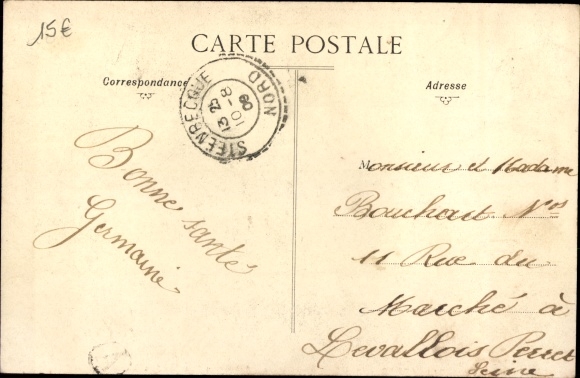 15€
CARTE POSTALE
Correspondance
Adresse
STEENBECQUE
NORD
13 25
10-8
09
Bonne santé
Germaine
Monsieur et Madame
Bouchart Nos
11 Rue du
Marché à
Levallois Perret
Seine